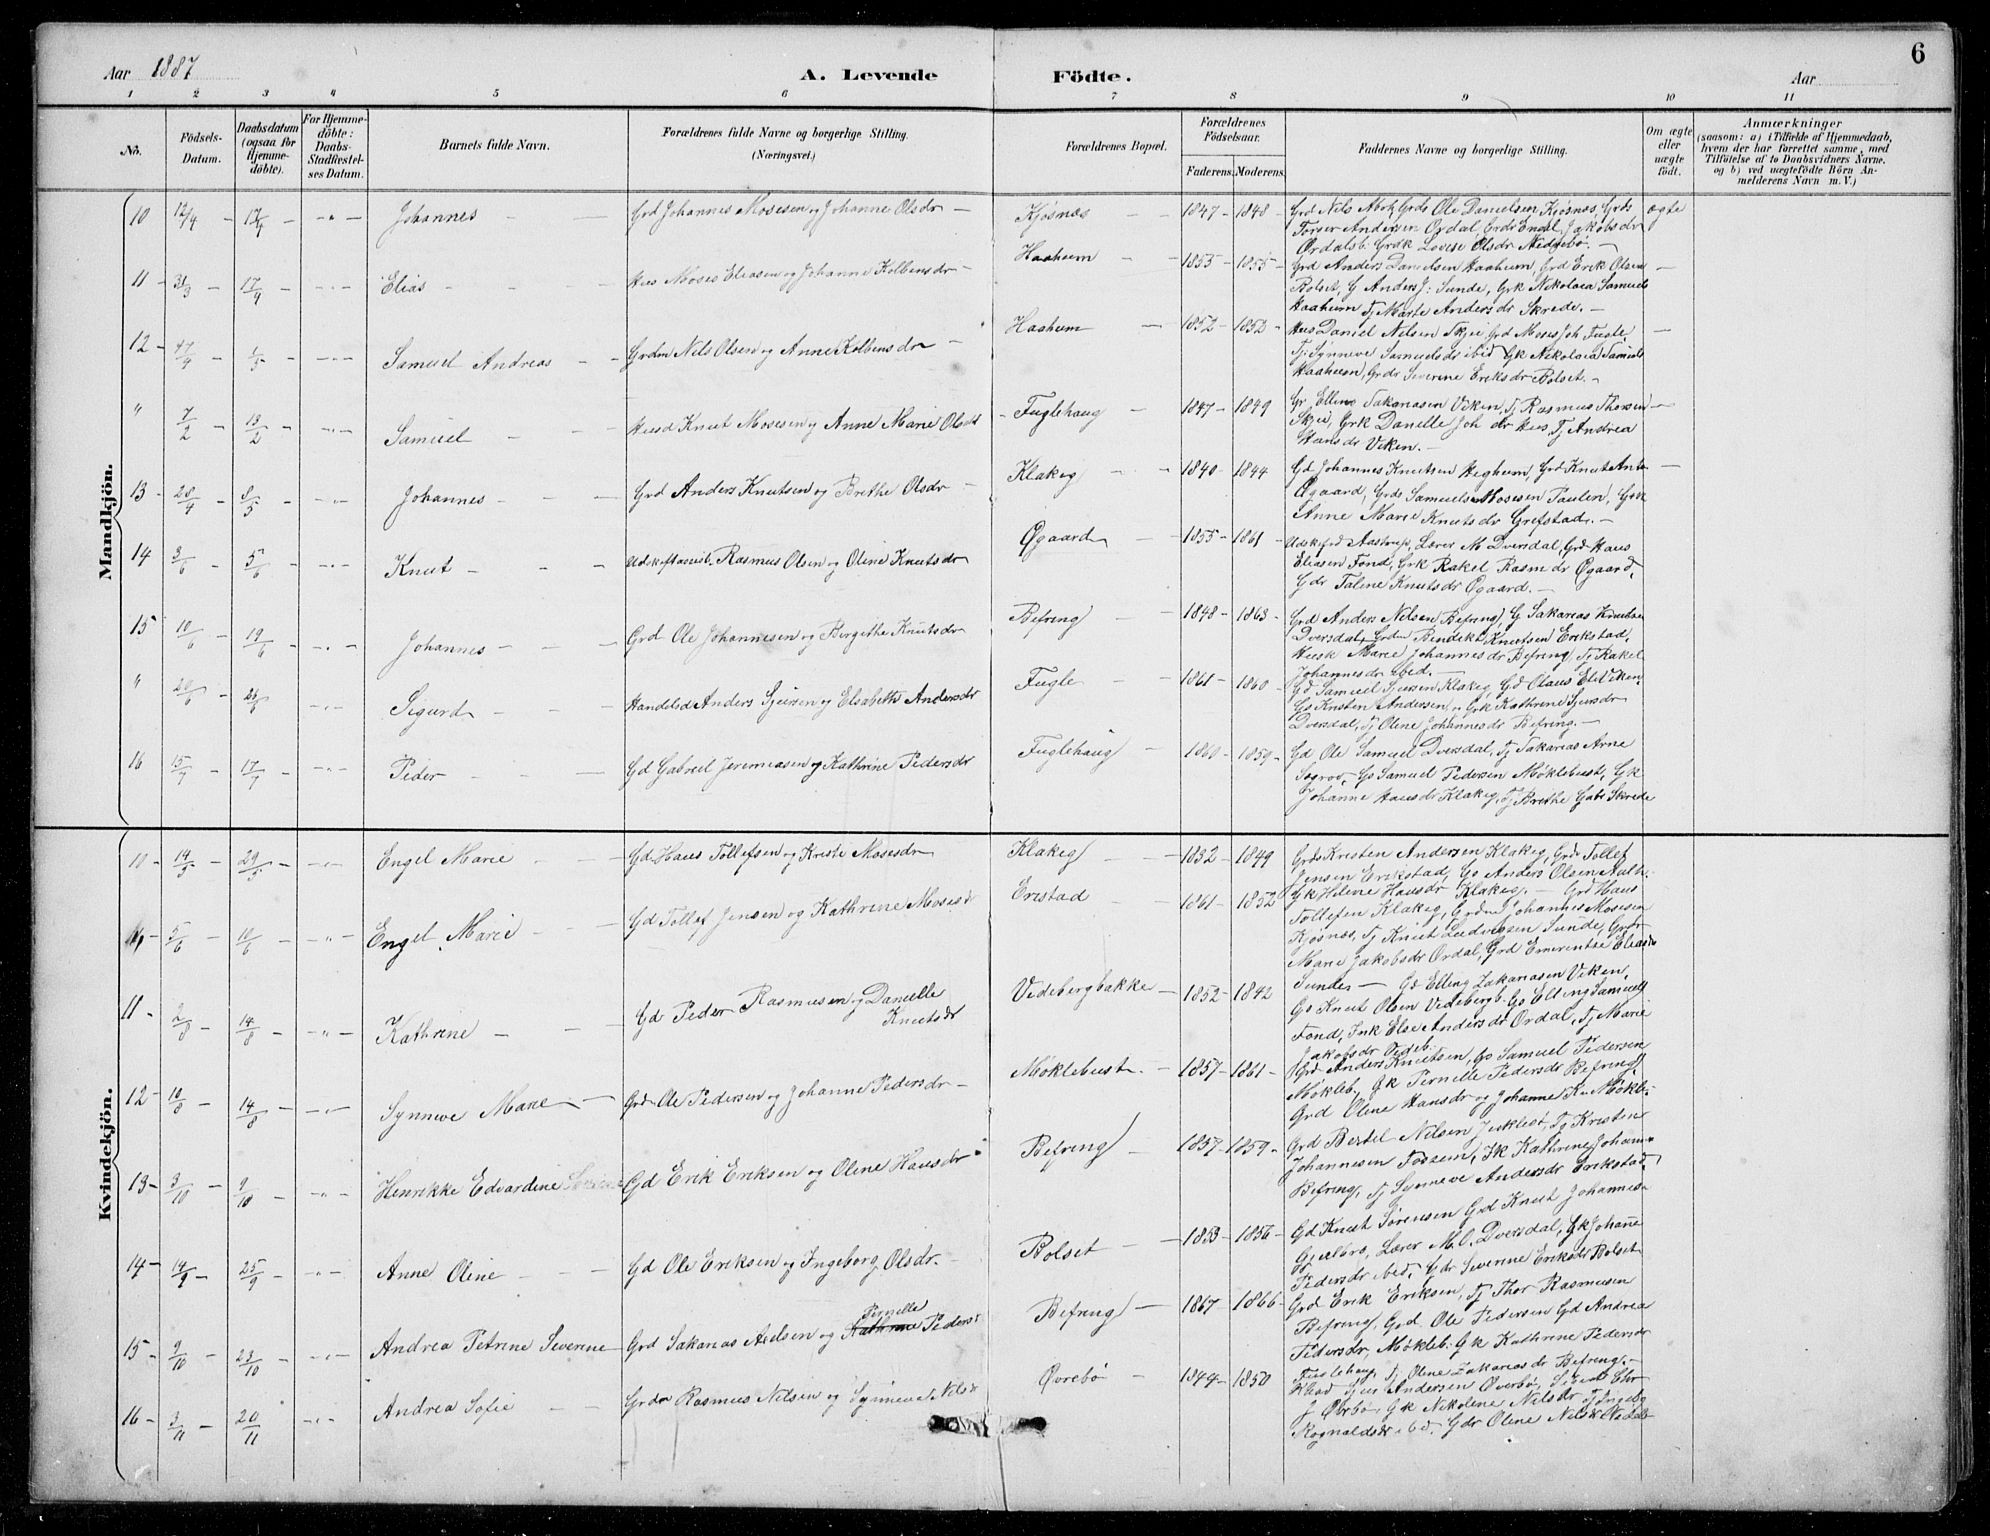 6
Aar 1887 A. Levende Födte. Aar
1 2 3 4 5 6 7 8 9 10 11
No. Födsels-Datum. Daabsdatum (ogsaa for Hjemme-döbte). For Hjemme-döbte: Daabs-Stadfæstel-ses Datum. Barnets fulde Navn. Forældrenes fulde Navne og borgerlige Stilling. (Næringsvei.) Forældrenes Bopæl. Forældrenes Födselsaar. Faderens. Moderens. Faddernes Navne og borgerlige Stilling. Om ægte eller uægte födt. Anmærkninger (saasom: a) i Tilfælde af Hjemmedaab, hvem der har forrettet samme, med Tilföielse af to Daabsvidners Navne. og b) ved uægtefödte Börn An-melderens Navn m. V.)
Mandkjön.
10 12/4 - 17/4 - " - Johannes - Grd Johannes Mosesen og Johanne Olsdr - Kjøsnæs - 1847 - 1848 - Grd Nils Grds Ole Danielsen Kjøsnæs, Grds ægte
Andersen Ordal, Grdr Engel Jakobsdr
Ordalsb. Grdk Lovise Olsdr Nedrebø. -
11 - 31/3 - 17/4 - " - Elias - Hus Moses Eliasen og Johanne Kolbensdr - Haaheim - 1855 - 1855 - Grd Anders Danielsen Haaheim, Grd Erik Olsen -
Bolset, G Anders J: Sunde, Grk Nikolaia Samuels
Haaheim Tj Marte Andersdr Skrede. -
12 - 1/5 - " - Samuel Andreas - Grdm Nils Olsen og Anne Kolbensdr - Haahum - 1852 - 1852 - Hus Daniel Nilsen Skjei Grd Moses Joh Fugle -
Tj. Synneve Samuelsdr ibid Gk Nikolaia Samuels
Haaheim, Grdr Severine Eriksdr Bolset. -
" 7/2 - 13/2 - " - Samuel - Husd Knut Mosesen og Anne Marie Olsdt - Fuglehaug - 1847 - 1849 Gr Elling Sakariasen Viken, Tj Rasmus Thorsen -
Skjei, Grk Danelle Joh dr Hus, Tj Andrea
Hansdr Viken. -
13 - 28/4 - 8/5 - " - Johannes - Grd Anders Knutsen og Brethe Olsdr - Klakeg - 1840 - 1844 Gd Johannes Knutsen Heghum, Grd Knut Ants -
Øgaard, Grds Samuels Mosesen Paulen, Grk
Anne Marie Knutsdr Grefstad. -
14 3/6 - 5/6 - " - Knut - Udskiftassist. Rasmus Olsen og Oline Knutsdr Øgaard - 1855 - 1861 - Udskifd Aastrup, Lærer M Dversdal, Grd Hans
Eliasen Fond, Grk Rakel Rasm dr Øgaard,
Gdr Taline Knutsdr Øgaard. -
15 10/6 - 19/6 - " - Johannes - Grd Ole Johannesen og Birgithe Knutsdr Befring - 1848 - 1863 - Grd Anders Nilsen Befring, G Sakarias Knudsen
Dversdal, Grdm Bendikt Knutsen Erikstad,
Husk Marie Johannesdr Befring, Tj Rakel
Johannesdr ibid. -
" 20/6 - 26/6 - " - Sigurd - Handelsd Anders Sjursen og Elsabeth Andersdr Fugle - 1861 - 1860 - Gd Samuel Sjursen Klakeg, Gd Olaus Ell Viken
Gs Kristen Andersen, Grk Kathrine Sjursdr
Dversdal, Tj Oline Johannesdr Befring. -
16 15/7 - 17/7 - " - Peder - Gd Gabriel Jeremiasen og Kathrine Pedersdr Fuglehaug - 1860 - 1859 - Gd Ole Samuel Dversdal, Tj Sakarias Arne
Søgrov, Gs Samuel Pedersen Møklebust, Gk
Johanne Hansdr Klakeg, Tj Brethe Gabr Skrede
Kvindekjön.
10 - 14/5 - 29/5 - " - Engel Marie - Gd. Hans Tollefsen og Kriste Mosesdr Klakeg - 1832 - 1849 Grds Kristen Andersen Klakeg, Grd Tollef
Jensen Erikstad, Gs Anders Olsen
Gk Helene Hansdr Klakeg. -
5/6 - 10/6 - " - Engel Marie - Gd Tollef Jensen og Kathrine Mosesdr Erestad - 1861 - 1852 Grd Hans
Tollefsen Klakeg, Grdm Johannes Mosesen
Kjøsnæs, Tj Knut Ludvigsen Sunde, Grdr
Marie Jakobsdr Ordal, Grd Emerentse Eliasdr
Sunde. -
11 - 2/8 - 14/8 - " - Kathrine - Gd Peder Rasmussen og Danielle Knutsdr Vedebergbakke - 1852 - 1842 Gd Elling Zakariasen Viken,
Gs Knut Olsen Vedebergb. Gs Elling Samuels
Fond, Ink Else Andersdr Ordal, Tj Marie
Jakobsdr Vedeb.
12 - 10/8 - 14/8 - " - Synneve Marie - Grd Ole Pedersen og Johanne Pedersdr - Møklebust - 1857 - 1861 - Grd Anders Knutsen, Gs Samuel Pedersen
Mökleb, Gk Pernelle Pedersdr Befring,
Grd Oline Hansdr og Johanne K Møkle-
13 - 3/10 - 9/10 - " - Henrikke Edvardine Gd Erik Eriksen og Oline Hansdr Befring - 1857 - 1859 - Grd Bertel Nilsen, Tj Kristen
Johannesen Fossem, Ik Kathrine Johann-
Befring, Tj Synneve Andersdr Erikstad,
14 - 14/9 - 25/9 - " - Anne Oline - Gd Ole Eriksen og Ingeborg Olsdr. - Bolset - 1853 - 1856 - Gd Knut Sørensen Grd Knut Johannes-
Lærer M. O. Dversdal, Gk Johanne
Pedersdr ibid, Gdr Severine Eriksdr Bolset
15 - 9/10 - 23/10 - " - Andrea Petrine Severine - Grd Sakarias Axelsen og Kathrine Pernelle Peders Befring - 1867 - 1866 - Grd Erik Eriksen, Tj Thor Rasmusen
Befring, Grd Ole Pedersen Gd Andrea
Pedersdr, Mökleb. Gk Kathrine Pedersdr
Fuglehaug, Tj Oline Zakariasdr Befring. -
16 - 3/11 - 20/11 - " - Andrea Sofie - Grdm Rasmus Nilsen og Synneva Nilsd Øvrebø - 1844 - 1850 Sjur Andersen Øverbø,
J Øvrbø, Gk Nikoline Nilsdr Tj
Rognaldsdr ibd, Gdr Oline Nilsdr